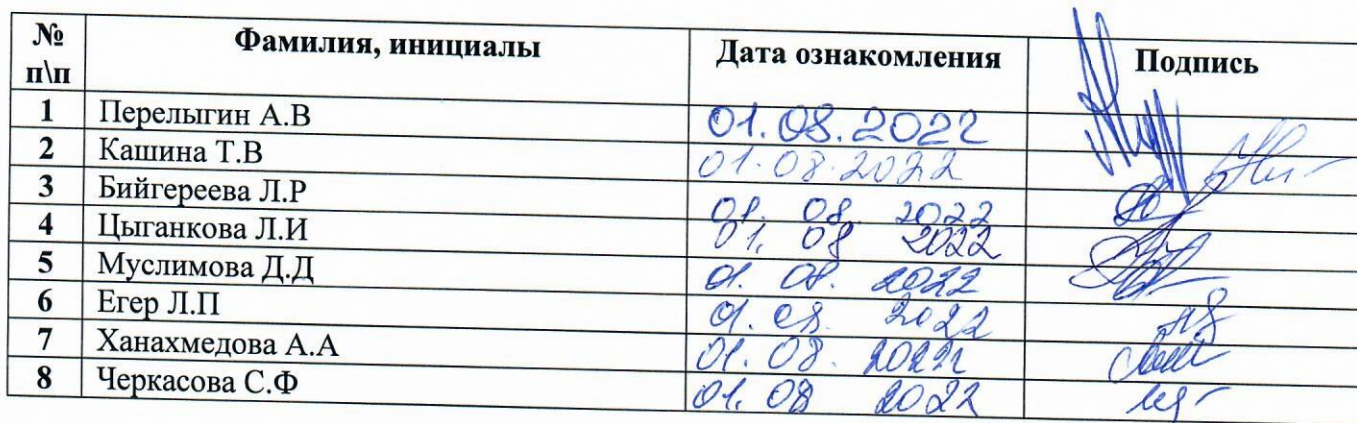 № п\п Фамилия, инициалы Дата ознакомления Подпись
1 Перелыгин А.В 01.08.2022
2 Кашина Т.В 01.08.2022
3 Бийгереева Л.Р 01. 08. 2022
4 Цыганкова Л.И 01. 08 2022
5 Муслимова Д.Д 01. 08. 2022
6 Егер Л.П 01. 08. 2022
7 Ханахмедова А.А 01. 08. 2022
8 Черкасова С.Ф 01. 08 2022